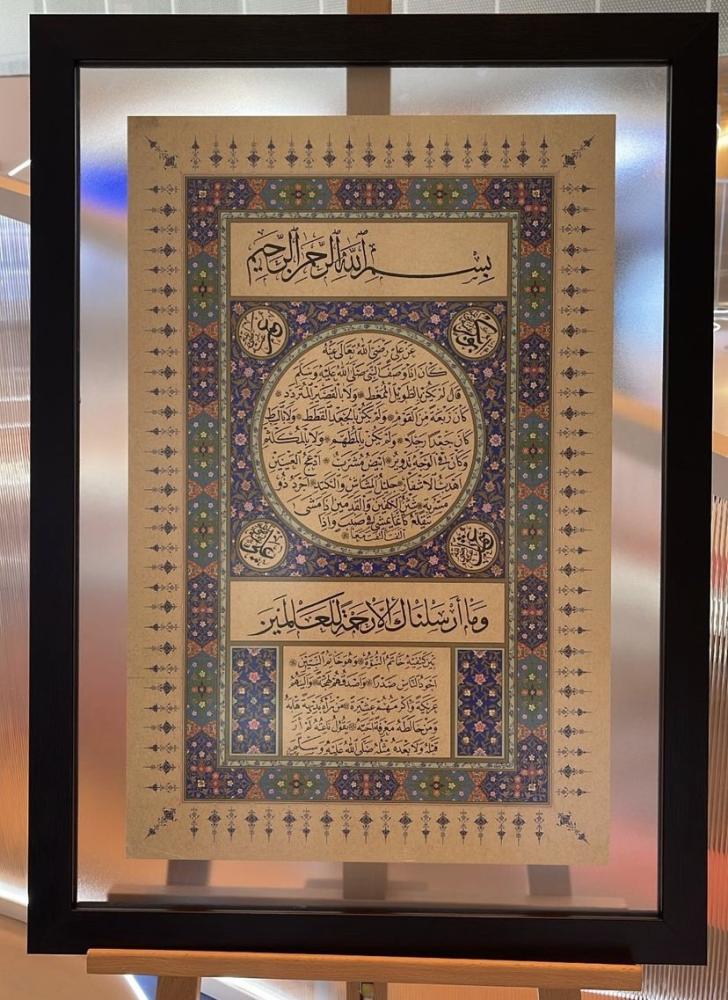 بِسْمِ اللهِ الرَّحْمٰنِ الرَّحِيمِ
عَنْ عَلِيٍّ رَضِيَ اللهُ تَعَالَى عَنْهُ
كَانَ إِذَا وَصَفَ النَّبِيَّ صَلَّى اللهُ عَلَيْهِ وَسَلَّمَ
قَالَ لَمْ يَكُنْ بِالطَّوِيلِ الْمُمَغَّطِ وَلَا بِالْقَصِيرِ الْمُتَرَدِّدِ
كَانَ رَبْعَةً مِنَ الْقَوْمِ وَلَمْ يَكُنْ بِالْجَعْدِ الْقَطَطِ وَلَا بِالسَّبِطِ
كَانَ جَعْدًا رَجِلًا وَلَمْ يَكُنْ بِالْمُطَهَّمِ وَلَا بِالْمُكَلْثَمِ
وَكَانَ فِي الْوَجْهِ تَدْوِيرٌ أَبْيَضُ مُشْرَبٌ أَدْعَجُ الْعَيْنَيْنِ
أَهْدَبُ الْأَشْفَارِ جَلِيلُ الْمُشَاشِ وَالْكَتَدِ أَجْرَدُ ذُو
مَسْرُبَةٍ شَثْنُ الْكَفَّيْنِ وَالْقَدَمَيْنِ إِذَا مَشَى
تَقَلَّعَ كَأَنَّمَا يَمْشِي فِي صَبَبٍ وَإِذَا
الْتَفَتَ الْتَفَتَ مَعًا
وَمَا أَرْسَلْنَاكَ إِلَّا رَحْمَةً لِلْعَالَمِينَ
بَيْنَ كَتِفَيْهِ خَاتَمُ النُّبُوَّةِ وَهُوَ خَاتَمُ النَّبِيِّينَ
أَجْوَدُ النَّاسِ صَدْرًا وَأَصْدَقُهُمْ لَهْجَةً وَأَلْيَنُهُمْ
عَرِيكَةً وَأَكْرَمُهُمْ عِشْرَةً مَنْ رَآهُ بَدِيهَةً هَابَهُ
وَمَنْ خَالَطَهُ مَعْرِفَةً أَحَبَّهُ يَقُولُ نَاعِتُهُ لَمْ أَرَ
قَبْلَهُ وَلَا بَعْدَهُ مِثْلَهُ صَلَّى اللهُ عَلَيْهِ وَسَلَّمَ